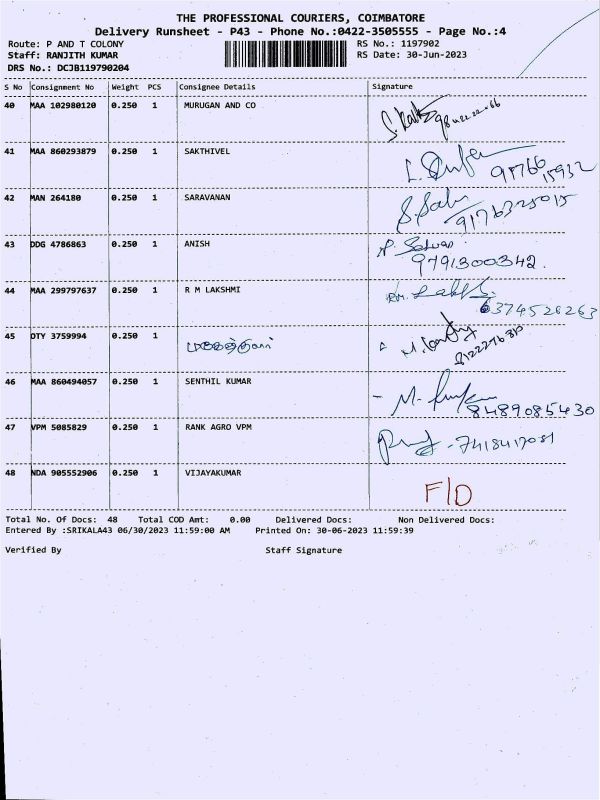 THE PROFESSIONAL COURIERS, COIMBATORE
Delivery Runsheet - P43 - Phone No.:0422-3505555 - Page No.:4
Route: P AND T COLONY RS No.: 1197902
Staff: RANJITH KUMAR RS Date: 30-Jun-2023
DRS No.: DCJB119790204
S No Consignment No Weight PCS Consignee Details Signature
40 MAA 102980120 0.250 1 MURUGAN AND CO
41 MAA 860293879 0.250 1 SAKTHIVEL
42 MAN 264180 0.250 1 SARAVANAN
9176325015
43 DDG 4786863 0.250 1 ANISH
9791300342
44 MAA 299797637 0.250 1 R M LAKSHMI
6374526263
45 DTY 3759994 0.250 1
46 MAA 860494057 0.250 1 SENTHIL KUMAR
8489085430
47 VPM 5085829 0.250 1 RANK AGRO VPM
48 NDA 905552906 0.250 1 VIJAYAKUMAR
F/D
Total No. Of Docs: 48 Total COD Amt: 0.00 Delivered Docs: Non Delivered Docs:
Entered By :SRIKALA43 06/30/2023 11:59:00 AM Printed On: 30-06-2023 11:59:39
Verified By Staff Signature